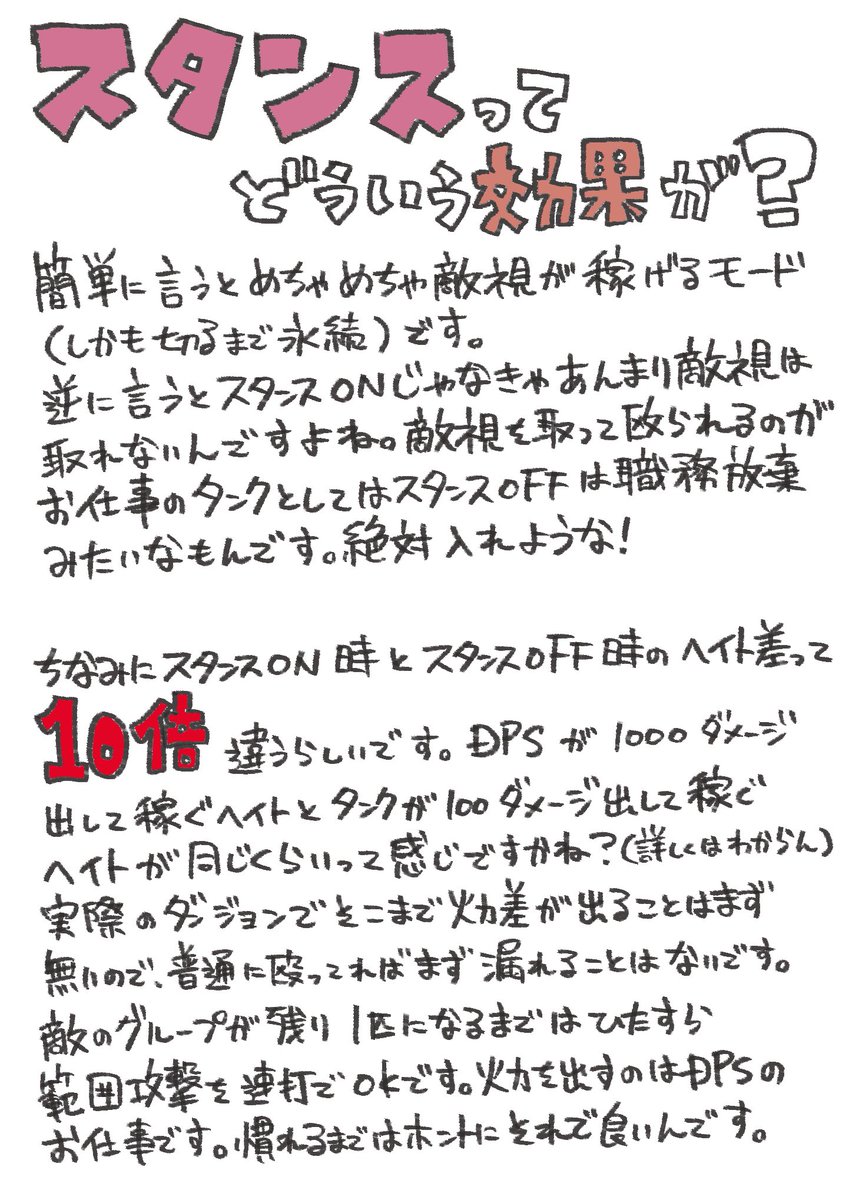 スタンスって
どういう効果が?
簡単に言うとめちゃめちゃ敵視が稼げるモード
(しかも切るまで永続)です。
逆に言うとスタンスONじゃなきゃあんまり敵視は
取れないんですよね。敵視を取って殴られるのが
お仕事のタンクとしてはスタンスOFFは職務放棄
みたいなもんです。絶対入れような!
ちなみにスタンスON時とスタンスOFF時のヘイト差って
10倍違うらしいです。DPSが1000ダメージ
出して稼ぐヘイトとタンクが100ダメージ出して稼ぐ
ヘイトが同じくらいって感じですかね?(詳しくはわからん)
実際のダンジョンでそこまで火力差が出ることはまず
無いので、普通に殴ってればまず漏れることはないです。
敵のグループが残り1匹になるまではひたすら
範囲攻撃を連打でOKです。火力を出すのはDPSの
お仕事です。慣れるまではホントにそれで良いんです。